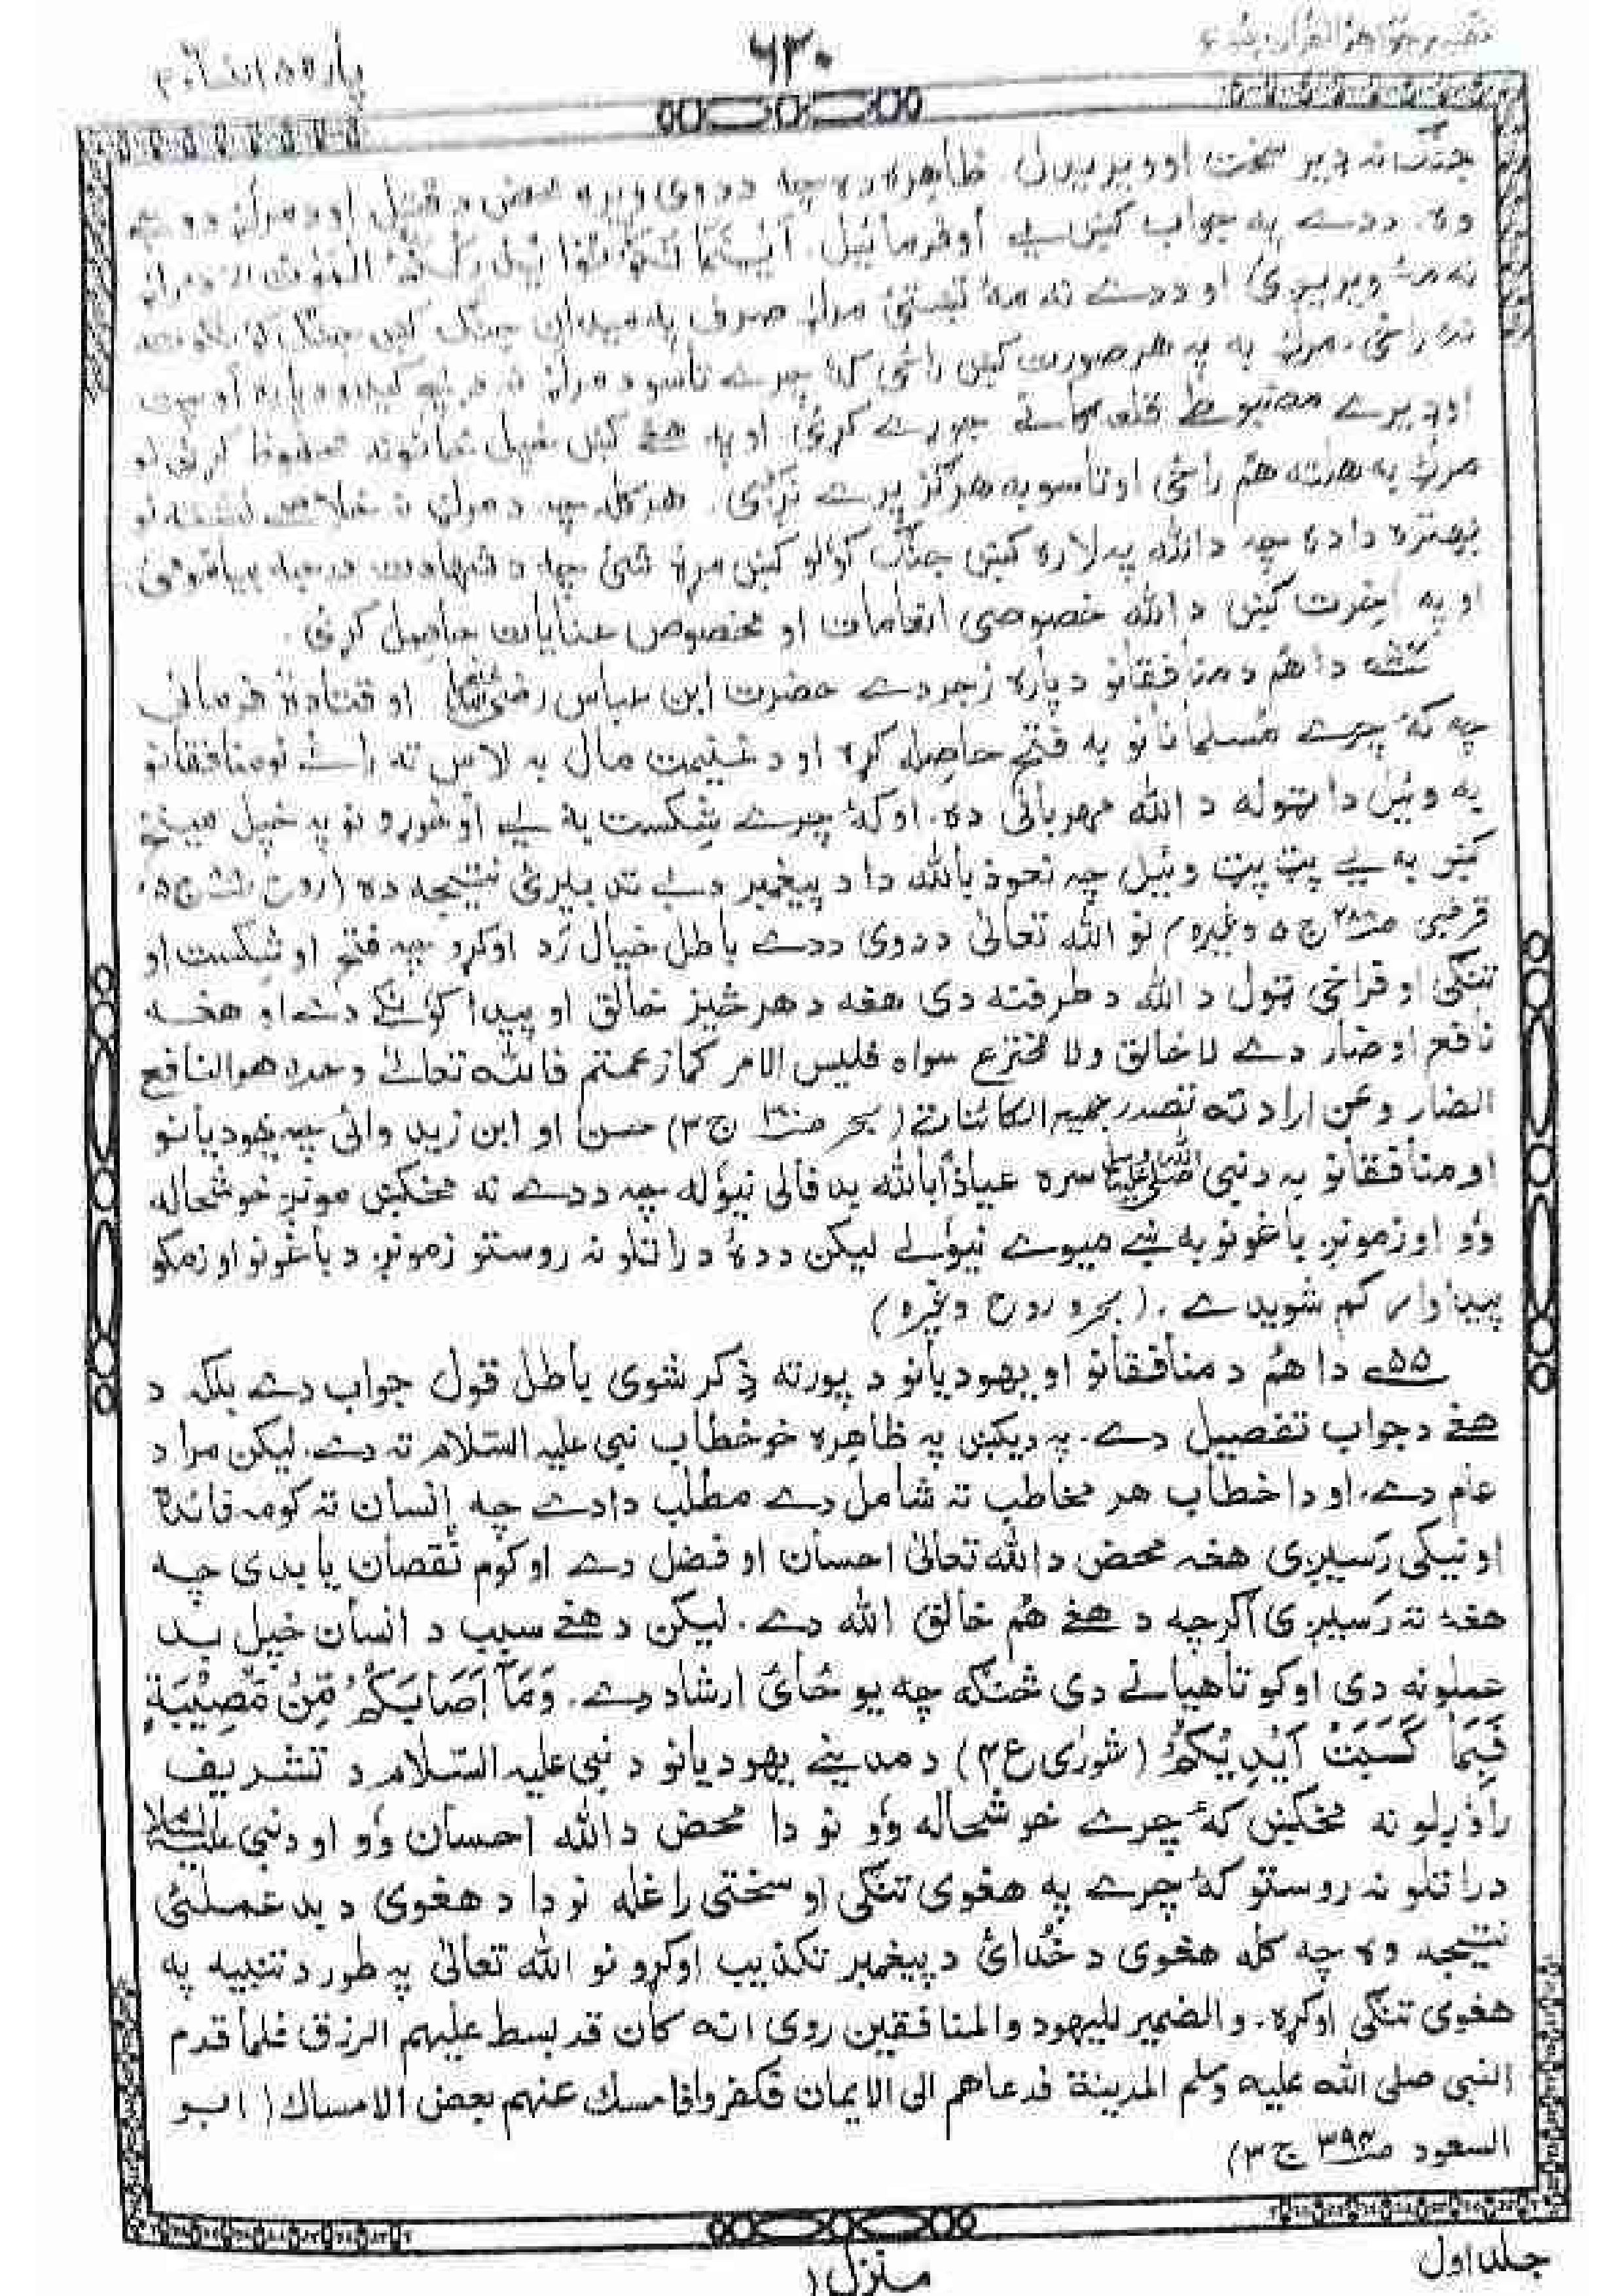 ۶۳۰
جنګ نه ډیر سخت او ویریدل. ظاهره ده چه ددوی ویره محض د قتل او د مرګ دوجه
وه. ددے په جواب کښ ئے اوفرمائیل. اَیْنَمَا تَکُوْنُوْا یُدْرِکْکُّمُ الْمَوْتُ الخ مرګ
نه مه ویریږئ او ددے نه مه تښتئ مرګ صرف په میدان جنګ کښ جنګ
نه راځی. مرګ به په هر صورت کښ راځی کۀ چرے تاسو د مرګ نه د بچ کیدو دپاره اوچت
او ډیرے مضبوط قلعه جوړے کړئ او په هغے کښ خپل ځانونه محفوظ کړئ نو
مرګ به هلته هم راځی او تاسو به هرګز پرے نږدی. هر کله چه د مرګ نه خلاصے نشته نو
بهتره داده چه د الله په لاره کښ جنګ کولو کښ مړۀ شئ چه د شهادت درجه بیامومئ
او په اخرت کښ د الله خصوصی انعامات او مخصوص عنایات حاصل کړئ.
دا هم د منافقانو دپاره زجر دے حضرت ابن عباس رضی الله او قتادۀ فرمائی
چه کۀ چرے مسلمانانو به فتح حاصله کړه او د غنیمت مال به لاس ته راغے نو منافقانو
به وئیل دا ټوله د الله مهربانی ده. او کۀ چرے شکست به ئے اوخوړو نو په خپل مینځ
کښ به ئے پټ پټ وئیل چه نعوذ بالله دا د پیغمبر دبے تدبیرئ نتیجه ده (روح ج ۵،
قرطبی ج ۵ وغیره) نو الله تعالیٰ ددوی ددے باطل خیال رَد اوکړو چه فتح او شکست او
تنګی او فراخی ټول د الله د طرفنه دی هغه د هر څیز خالق او پیدا کوُنکے دے او هغه
نافع او ضار دے لا خالق ولا مخترع سواه فلیس الامر کما زعمتم فالله تعالیٰ وحده هو النافع
الضار وعن ارادته تصدر جمیع الکائنات (بحر ج ۳) حسن او ابن زید وائی چه یهودیانو
او منافقانو به دنبی صلی الله علیه وسلم سره عیاذًا بالله بد فالی نیوُله چه ددے نه مخکښ مونږ خوشحاله
وُو او زمونږ باغونو به ښے میوے نیوُلے لیکن ددۀ دراتلو نه روستو زمونږ د باغونو او زمکو
پیداوار کم شویدے. (بحر و روح وغیره)
۵۵ دا هُم د منافقانو او یهودیانو د پورته ذِکر شوی باطل قول جواب دے بلکه د
هغے د جواب تفصیل دے. په دیکښ په ظاهره خو خطاب نبی علیه السّلام ته دے. لیکن مراد
عام دے. او دا خطاب هر مخاطب ته شامل دے مطلب دادے چه اِنسان ته کومه فائده
او نیکی رَسیږی هغه محض د الله تعالیٰ احسان او فضل دے او کوُم نُقصان یا بدی چه
هغه ته رَسیږی اګرچه د هغے هُم خالق الله دے. لیکن د هغے سبب د انسان خپل بد
عملونه دی او کوتاهیانے دی څنګه چه یو ځائ ارشاد دے. وَمَآ اَصَابَکُمْ مِّنْ مُّصِیْبَةٍ
فَبِمَا کَسَبَتْ اَیْدِیْکُمْ (شوریٰ ع ۴) د مدینے یهودیانو د نبی علیه السّلام د تشریف
راوړلو نه مخکښ کۀ چرے خوشحاله وُو نو دا محض د الله احسان وُو او د نبی علیه السلام
دراتلو نه روستو کۀ چرے په هغوی تنګی او سختی راغله نو دا د هغوی د بد عملئ
نتیجه وه چه کله هغوی د خُدائ د پیغمبر تکذیب اوکړو نو الله تعالیٰ په طور د تنبیه په
هغوی تنګی اوکړه. والضمیر للیهود والمنافقین روی انه کان قد بسط علیهم الرزق فلما قدم
النبی صلی الله علیه وسلم المدینة فدعاهم الی الایمان فکفروا فامسك عنهم بعض الامساك (ابو
السعود ص۳۹۴ ج ۳)
جلد اول
منزل ۱